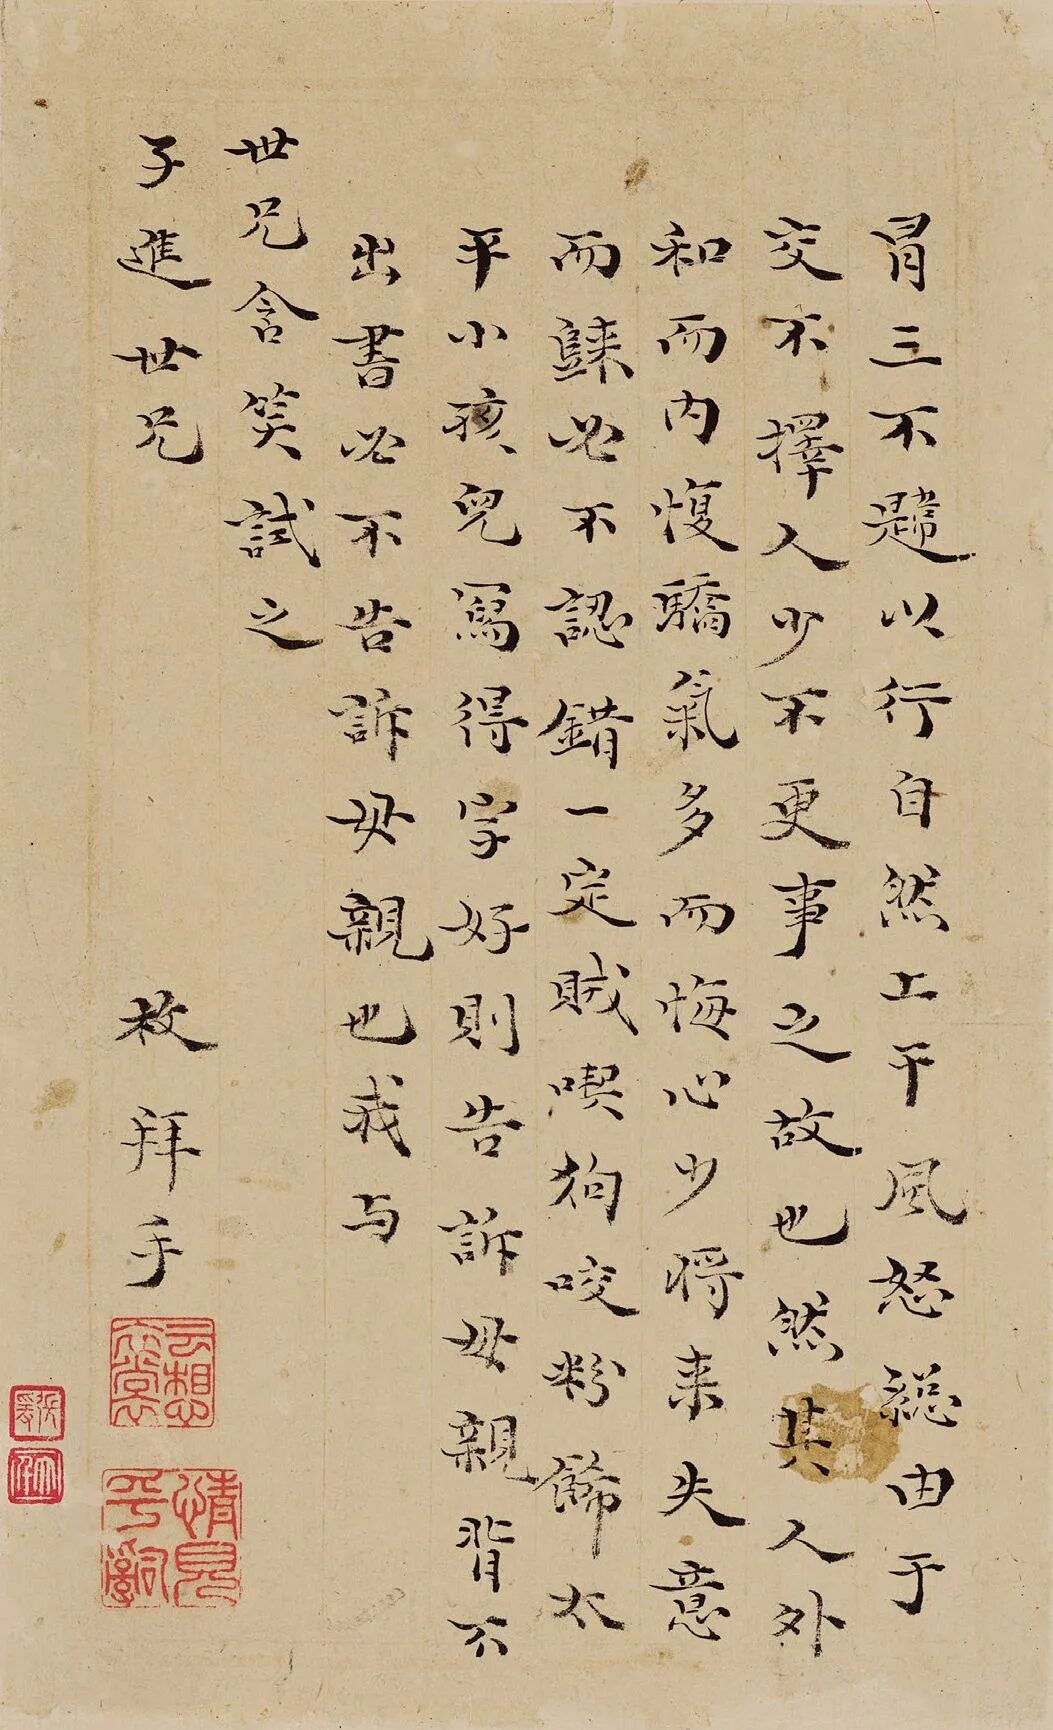 冒三不韙以行自然上干風怒總由于
交不擇人少不更事之故也然其人外
和而内愎驕氣多而悔心少將来失意
而歸必不認錯一定賊喫狗咬粉飾太
平小孩兒寫得字好則告訴母親背不
出書必不告訴母親也我与
世兄含笑試之
子進世兄
枚拜手
情見乎詞